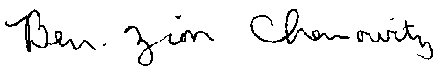 Ben. Zion Chanowitz